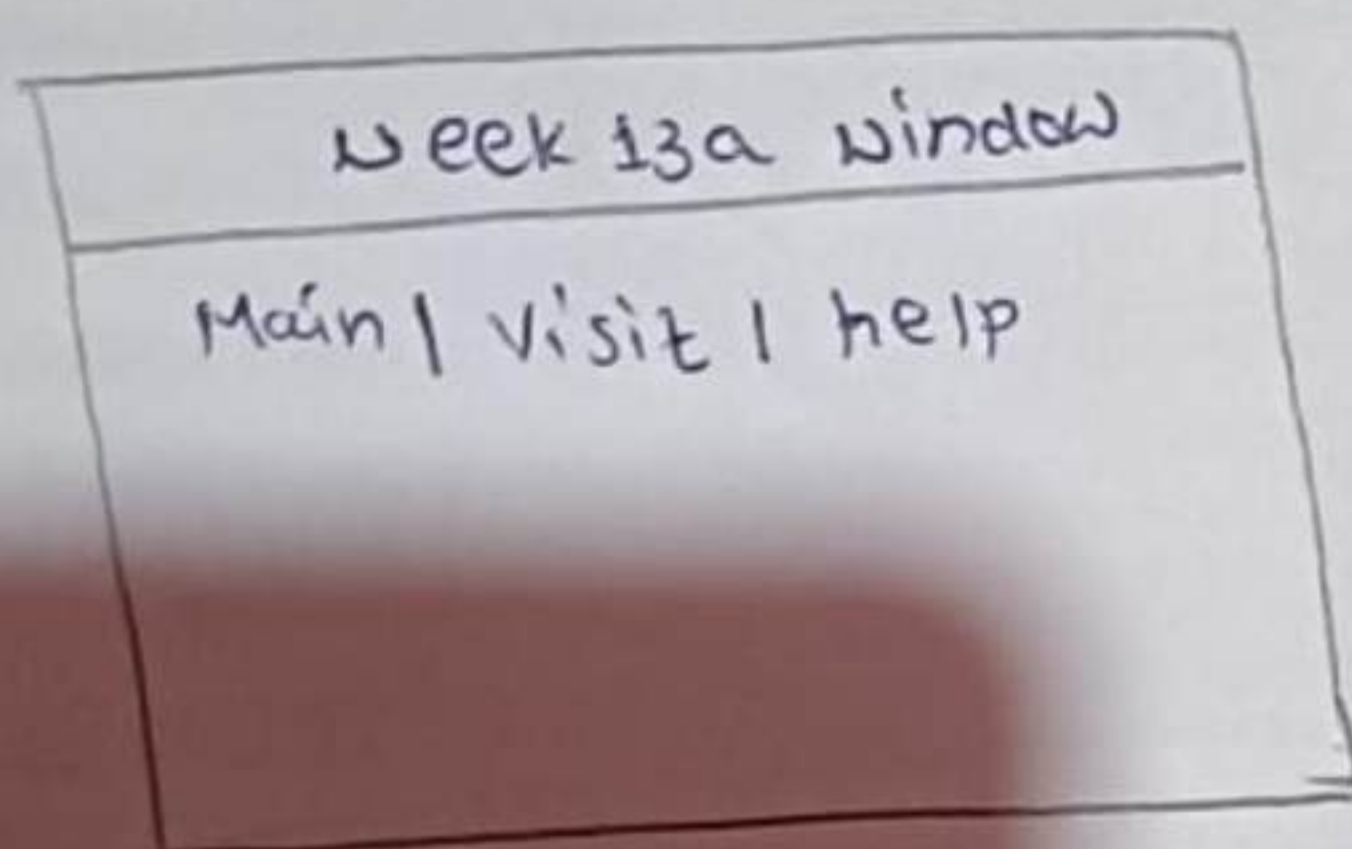 week 13a window
Main | visit | help